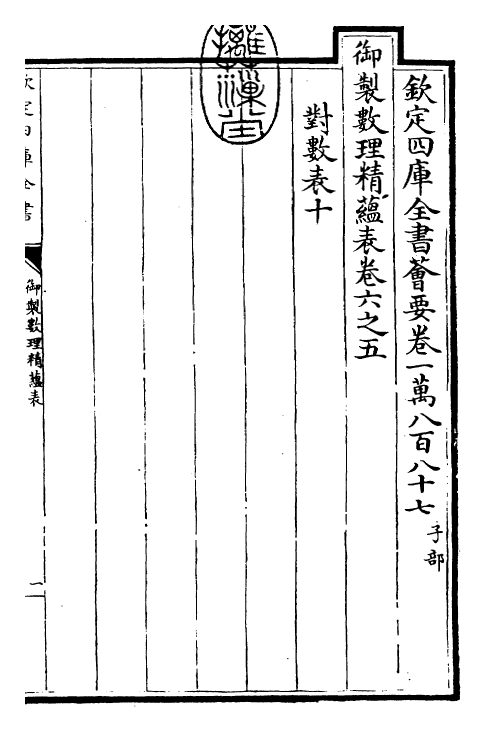 欽定四庫全書薈要卷一萬八百八十七 子部
御製數理精蘊表卷六之五
對數表十
欽定四庫全書
御製數理精蘊表
一